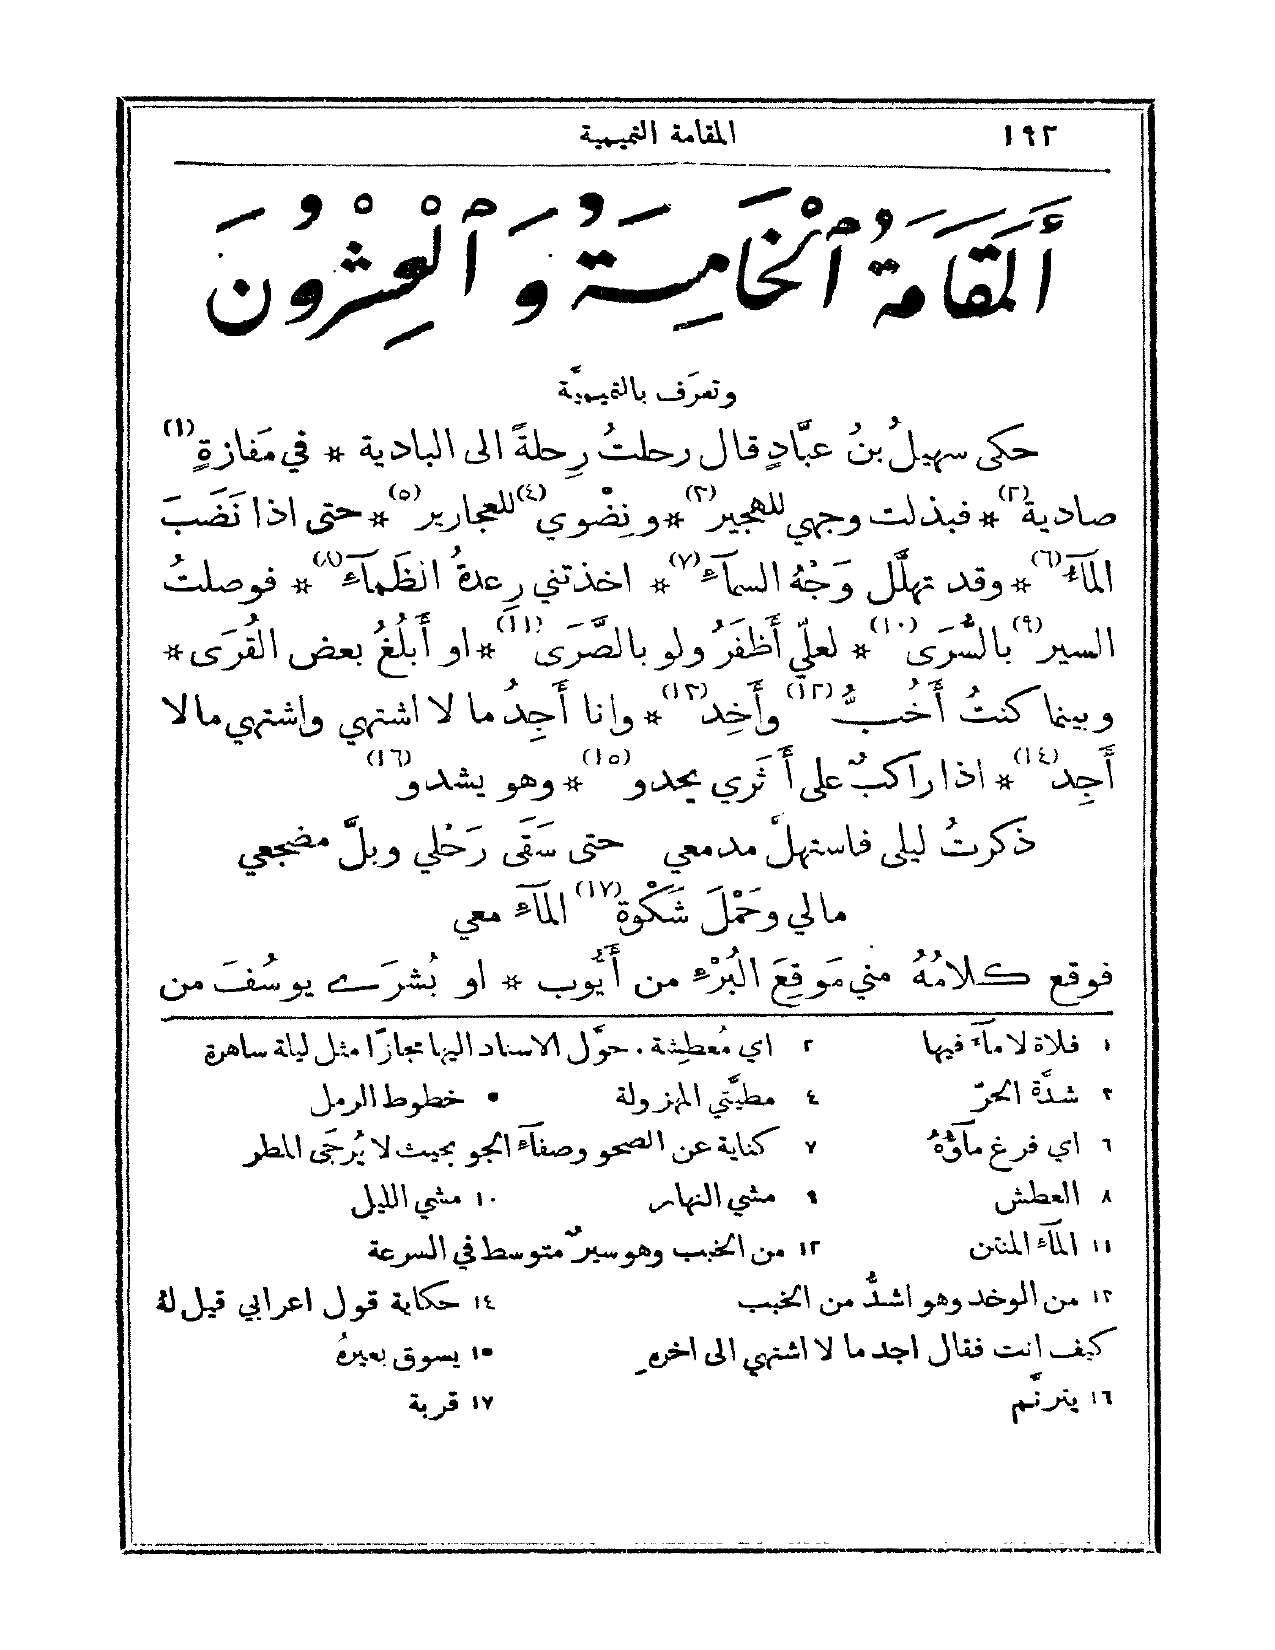 ١٩٢
المقامة التميمية
أَلمَقَامَةُ ٱلْخَامِسَةُ وَٱلْعِشْرُونَ
وتعرَف بالتميميَّة
حكى سهيلُ بنُ عبَّادٍ قال رحلتُ رِحلةً الى البادية * في مَفازةٍ(١)
صادية(٢) * فبذلت وجهي للهجير(٣) * ونِضْوي(٤) للعجارير(٥) * حتى اذا نَضَبَ
المآءُ(٦) * وقد تهلَّل وَجْهُ السمآءِ(٧) * اخذتني رِعدةُ الظَمآءِ(٨) * فوصلتُ
السير(٩) بالسُّرَى(١٠) * لعلّي أَظفَرُ ولو بالصَّرَى(١١) * او أَبلُغُ بعض القُرَى *
وبينما كنتُ أَخُبُّ(١٢) وأَخِد(١٣) * وانا أَجِدُ ما لا اشتهي واشتهي ما لا
أَجِد(١٤) * اذا راكبٌ على أَثَري يحدو(١٥) * وهو يشدو(١٦)
ذكرتُ ليلى فاستهلّْ مدمعي حتى سَقَى رَحْلي وبلَّ مضجعي
مالي وحَمْلَ شَكْوةِ(١٧) المآءِ معي
فوقع كلامُهُ مني مَوقِعَ البُرْءِ من أَيُّوب * او بُشرَى يوسُفَ من
١ فلاة لا مآءَ فيها ٢ اي مُعطِشة. حوَّل الاسناد اليها مجازًا مثل ليلة ساهرة
٣ شدَّة الحرّ ٤ مطيَّتي المهزولة ٥ خطوط الرمل
٦ اي فرغ مآؤُهُ ٧ كناية عن الصحو وصفآء الجو بحيث لا يُرجَى المطر
٨ العطش ٩ مشي النهار ١٠ مشي الليل
١١ المآء المنتن ١٢ من الخبب وهو سيرٌ متوسط في السرعة
١٣ من الوخد وهو اشدُّ من الخبب ١٤ حكاية قول اعرابي قيل لهُ
كيف انت فقال اجد ما لا اشتهي الى اخرهِ ١٥ يسوق بعيرهُ
١٦ يترنَّم ١٧ قربة